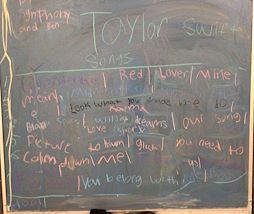 Symphony
and Ben
Taylor Swift
Songs
Red | Lover | Mine |
mean |
Look what you made me do |
Blank Space | wildest dreams | our song |
Love story
Picture to burn | you need to
Calm down | me |
You belong with me |